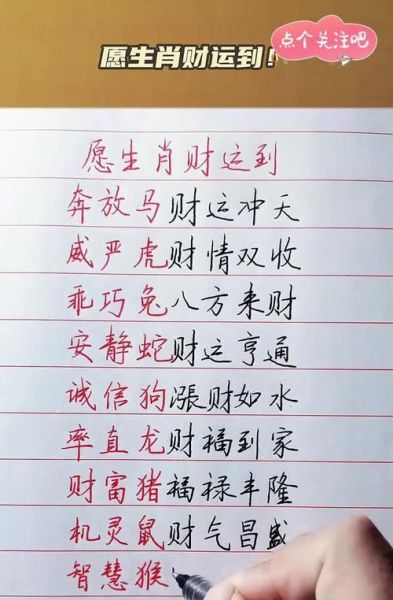 愿生肖财运到！
点个关注吧
愿生肖财运到
奔放马财运冲天
威严虎财情双收
乖巧兔八方来财
安静蛇财运亨通
诚信狗漲财如水
率直龙财福到家
财富猪福禄丰隆
机灵鼠财气昌盛
智慧猴